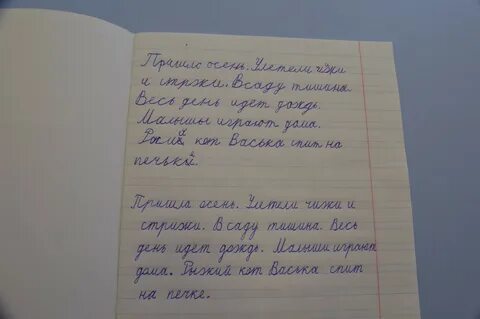 Пришло осень. Улетели чижи
и стрэки. В саду тишина
Весь день идет дождь.
Малышы играют дома.
кот Васька спит на
печьки.
Пришла осень. Улетели чижи и
стрижи. В саду тишина. Весь
день идет дождь. Малыши играют
дома. Рыжий кот Васька спит
на печке.